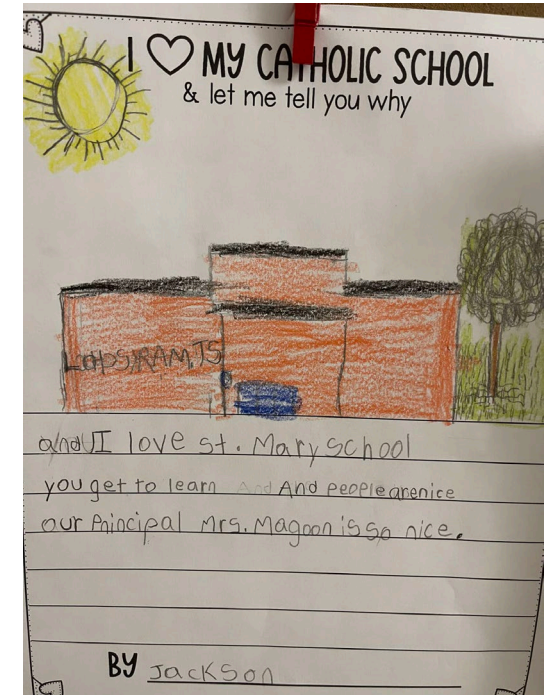 I ♡ MY CATHOLIC SCHOOL
& let me tell you why
and I love St. Mary School
you get to learn And And people are nice
our Principal Mrs. Magoon is so nice.
BY Jackson